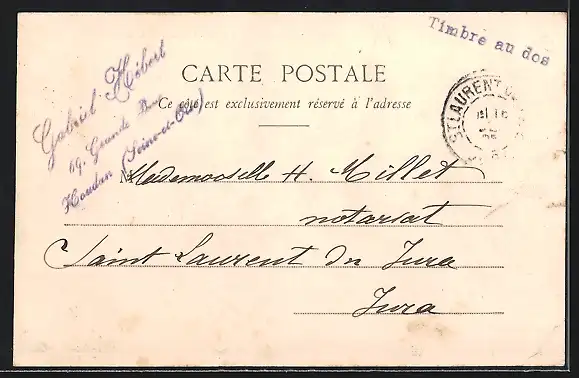 Timbre au dos
Gabriel Hébert
69, Grande Rue
Houdan (Seine-et-Oise)
CARTE POSTALE
Ce côté est exclusivement réservé à l'adresse
ST LAURENT
Mademoiselle H. Millet
notariat
Saint Laurent du Jura
Jura